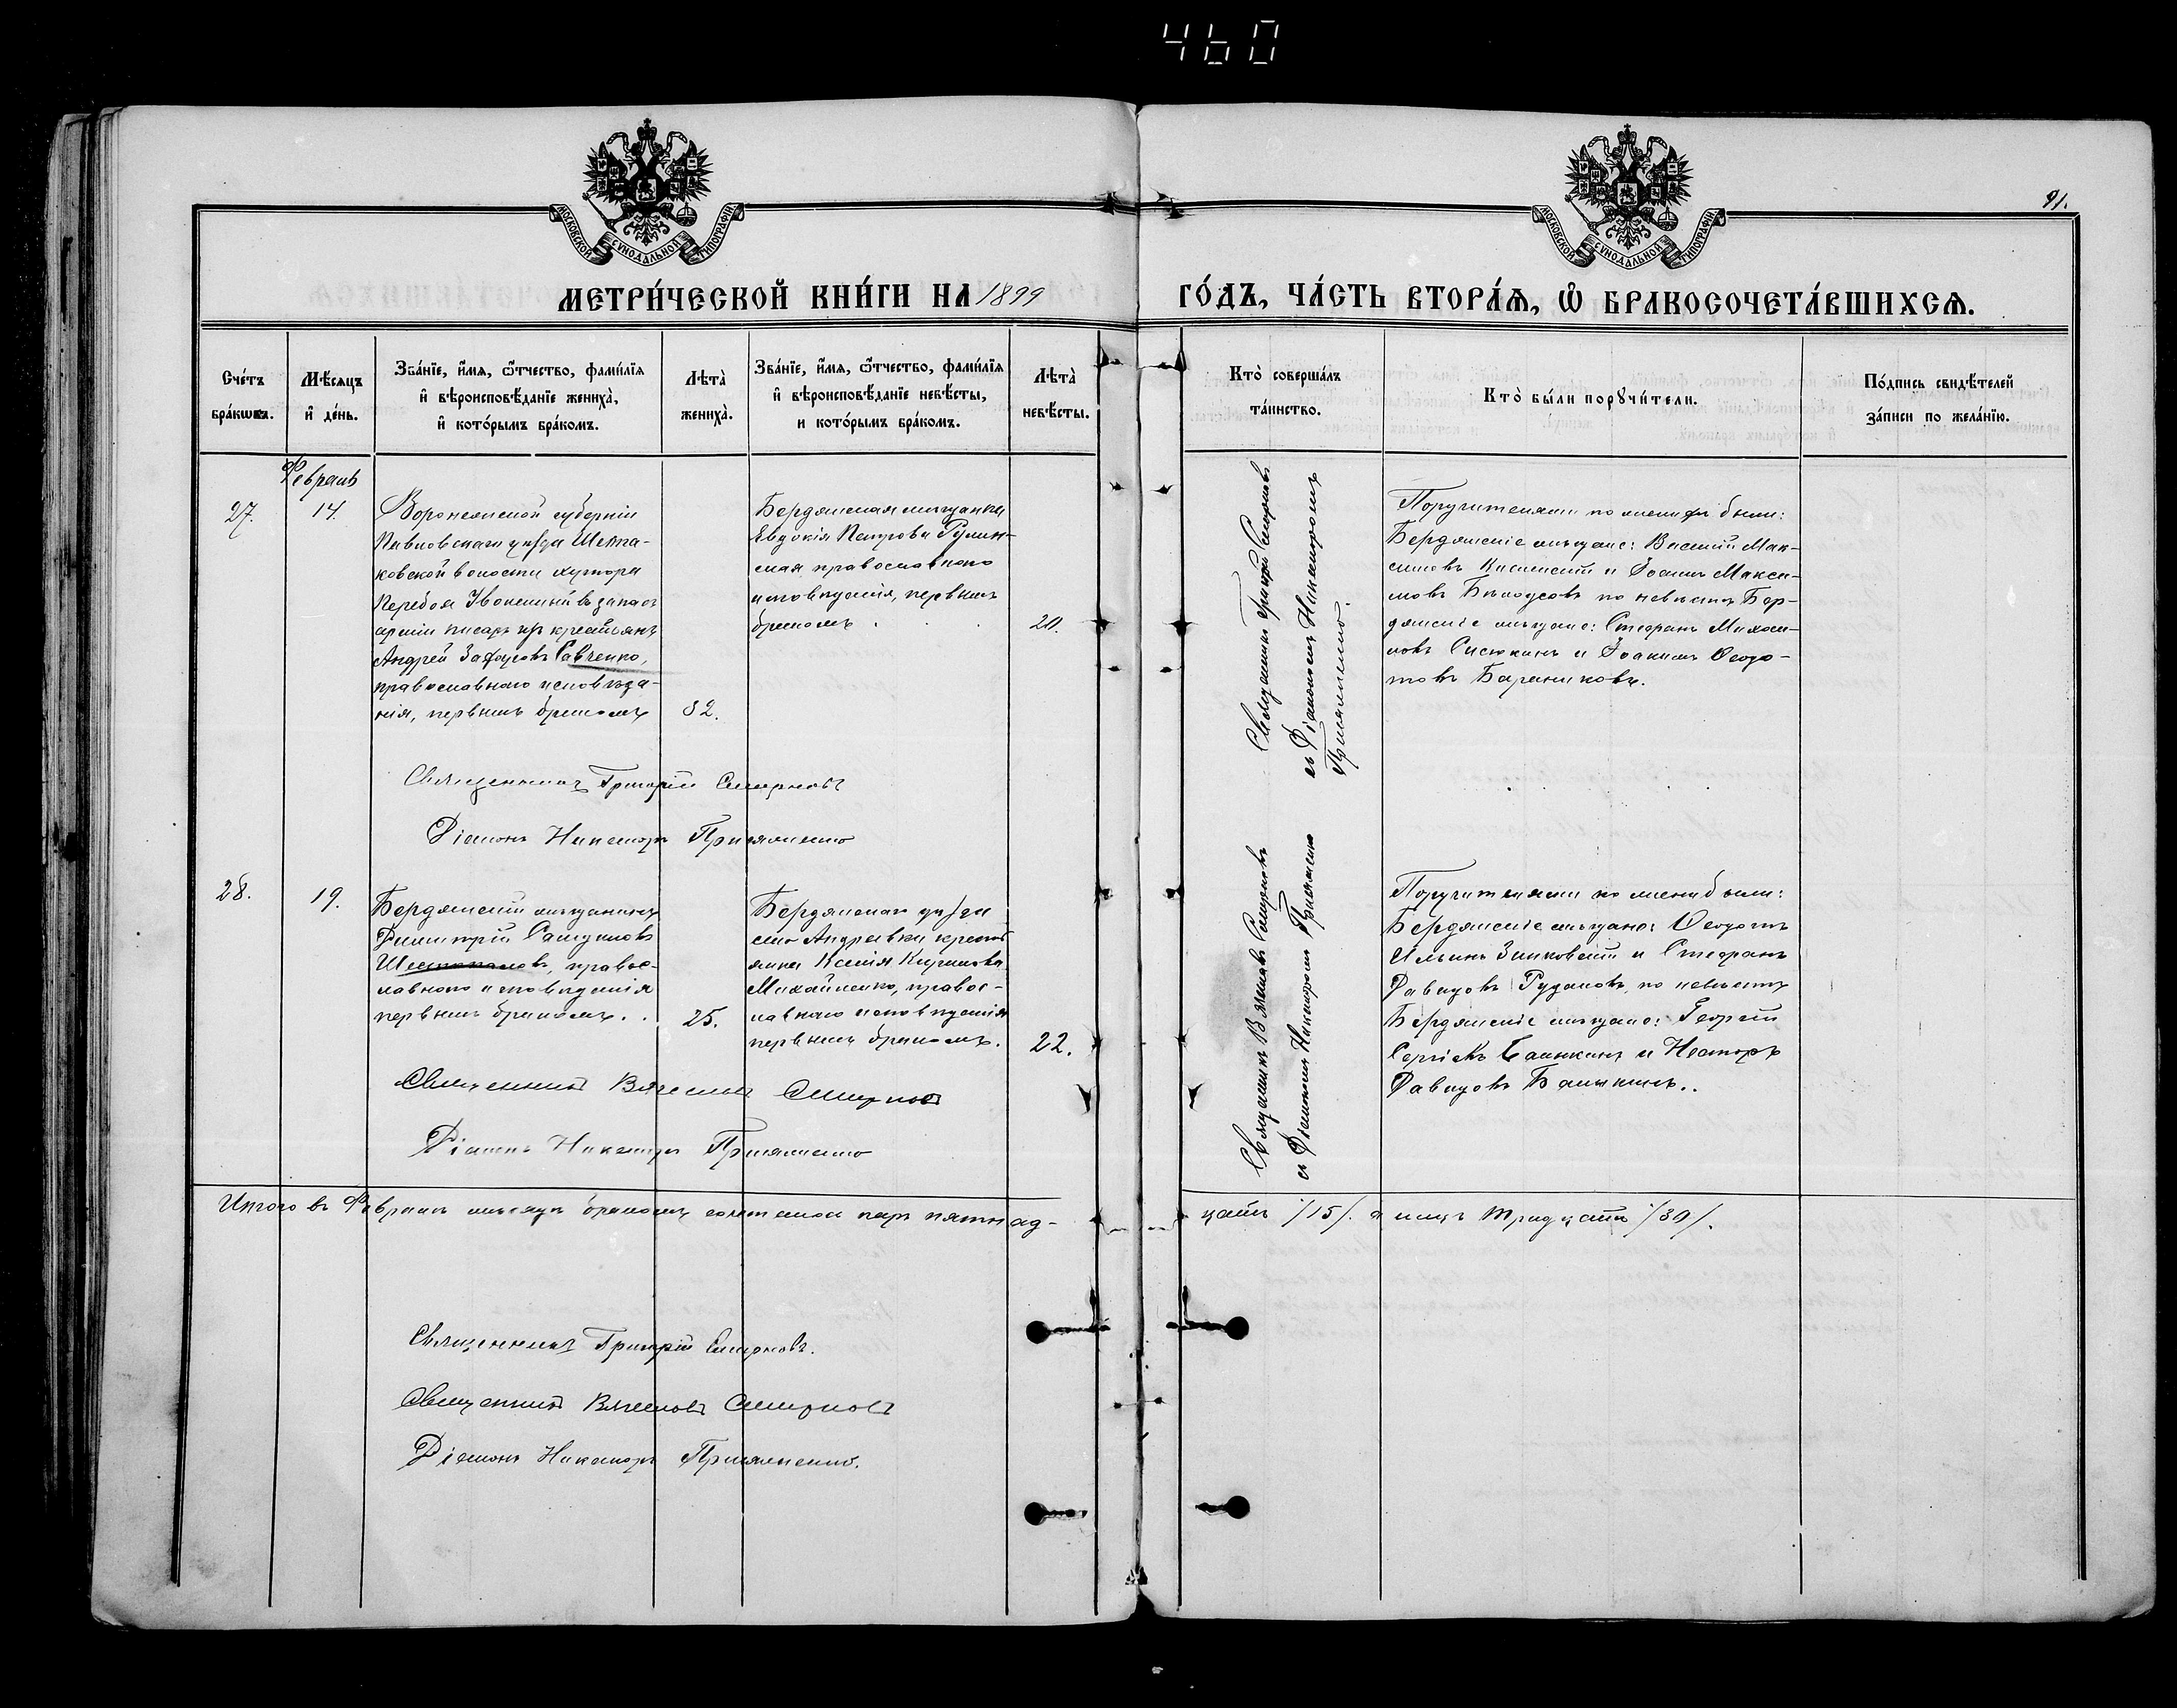 460
МОСКОВСКОЙ СУНОДАЛЬНОЙ ТИПОГРАФІИ
МОСКОВСКОЙ СУНОДАЛЬНОЙ ТИПОГРАФІИ
91.
МЕТРИ́ЧЕСКОЙ КНИ́ГИ НА 1899
ГО́ДЪ, ЧА́СТЬ ВТОРА́Ѧ, Ѽ БРАКОСОЧЕТА́ВШИХСѦ.
Сче́тъ
бра́кѡвъ.
Мѣ́сяцъ
и҆ де́нь.
Зва́нїе, и҆́мя, ѻ҆́тчество, фами́лїя
и҆ вѣроисповѣ́данїе жениха̀,
и҆ кото́рымъ бра́комъ.
Лѣта̀
жениха̀.
Зва́нїе, и҆́мя, ѻ҆́тчество, фами́лїя
и҆ вѣроисповѣ́данїе невѣ́сты,
и кото́рымъ бра́комъ.
Лѣта̀
невѣ́сты.
Кто̀ соверша́лъ
та́инство.
Кто̀ бы́ли порꙋчи́тели.
По́дпись свидѣ́телей
за́писи по жела́нїю.
Февраль
27.
14.
Воронежской губерніи
Павловскаго уѣзда
ковской волости хутора
въ запасъ
арміи писарь изъ крестьянъ
Андрей Савченко,
православнаго исповѣда-
нія, первымъ бракомъ
32.
Бердянская мѣщанка
Евдокія Петрова
ская православнаго
исповѣданія, первымъ
бракомъ
20.
Священникъ Григорій Смирновъ
съ Діакономъ Никаноромъ
Поручителями по женихѣ были:
Бердянскіе мѣщане: Василій Мак-
симовъ и Іоаннъ Макси-
мовъ Бѣлоусовъ по невѣстѣ Бер-
дянскіе мѣщане: Стефанъ Михаи-
ловъ и Іоакимъ Ѳеодо-
товъ Баранниковъ.
Священникъ Григорій Смирновъ
Діаконъ Никаноръ
28.
19.
Бердянскій мѣщанинъ
Димитрій Самуиловъ
Шестопаловъ, правос-
лавнаго исповѣданія
первымъ бракомъ.
25.
Бердянскаго уѣзда
села Андреевки кресть-
янка Ксенія Кириллова
Михайленко, правос-
лавнаго исповѣданія
первымъ бракомъ.
22.
Священникъ Вячеславъ Смирновъ
съ Діакономъ Никаноромъ
Поручителями по женихѣ были:
Бердянскіе мѣщане: Ѳеодотъ
Ильинъ Зинковскій и Стефанъ
Давидовъ Рудаковъ, по невѣстѣ
Бердянскіе мѣщане: Георгій
Сергіевъ и Несторъ
Давидовъ
Священникъ Вячеславъ Смирновъ
Діаконъ Никаноръ
Итого въ Февралѣ мѣсяцѣ бракомъ сочеталось паръ пятнад-
цать /15/. а лицъ тридцать /30/.
Священникъ Григорій Смирновъ.
Священникъ Вячеславъ Смирновъ
Діаконъ Никаноръ